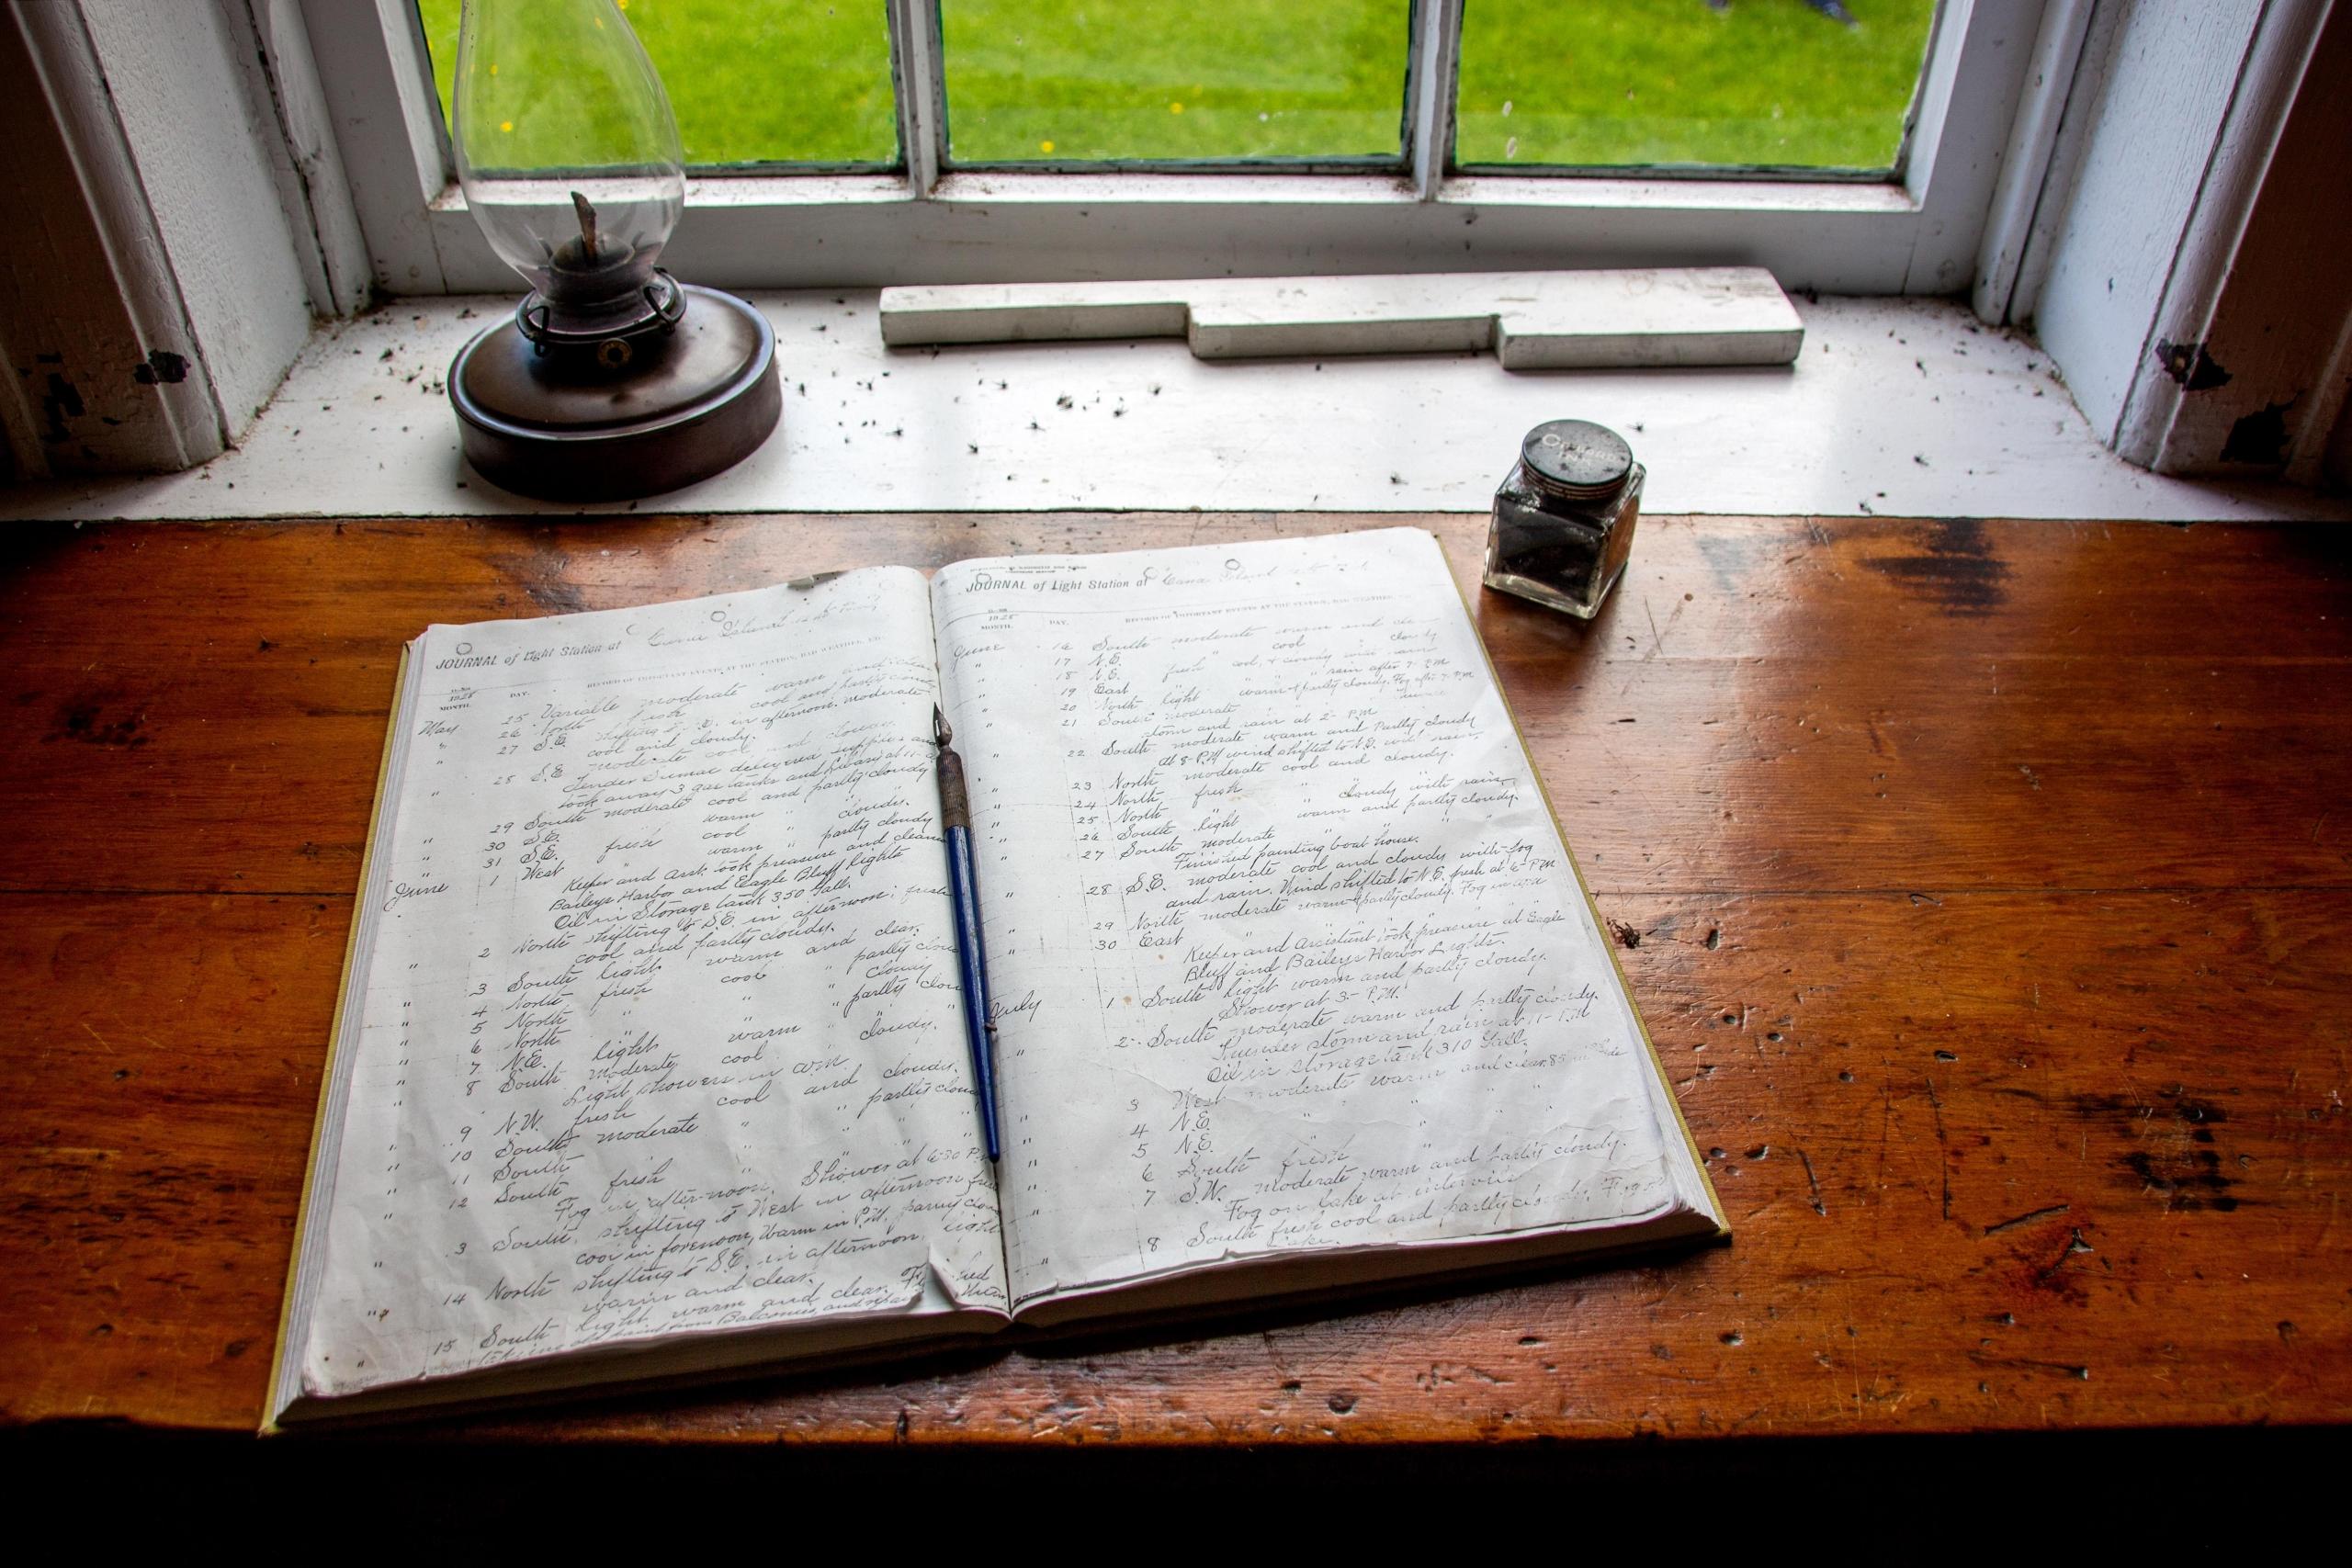 JOURNAL of Light Station at Cana Island
RECORD OF IMPORTANT EVENTS AT THE STATION, BAD WEATHER, ETC.
1925
MONTH. DAY.
May 25 Variable moderate warm and clear
" 26 North fresh cool and partly cloudy
" 27 S.E. shifting to S.E. in afternoon. moderate
cool and cloudy.
" 28 S.E. moderate cool and cloudy.
Tender Sumac delivered supplies and
took away 3 gas tanks and at 11-
" 29 South moderate cool and partly cloudy
" 30 S.E. " warm " cloudy.
" 31 S.E. fresh cool " partly cloudy
June 1 West " warm "
Keeper and Asst. took pressure and cleaned
Baileys Harbor and Eagle Bluff lights
Oil in Storage tank 350 Gall.
" 2 North shifting to S.E. in afternoon; fresh
cool and partly cloudy.
" 3 South light warm and clear.
" 4 North fresh cool " partly cloudy
" 5 North " " " cloudy
" 6 North " " " partly cloudy
" 7 N.E. light warm " cloudy.
" 8 South moderate cool
Light showers in A.M.
" 9 N.W. fresh cool and cloudy.
" 10 South moderate " " partly cloudy
" 11 South " " " "
" 12 South fresh "
Fog in after-noon. Shower at 6-30 P.M
" 3 South, shifting to West in afternoon fresh
cool in forenoon, Warm in P.M. partly cloudy
" 14 North shifting to S.E. in afternoon, light
warm and clear.
" 15 South light warm and clear.
old paint from Balconies, and
JOURNAL of Light Station at Cana Island
RECORD OF IMPORTANT EVENTS AT THE STATION, BAD WEATHER,
1925
MONTH. DAY.
June 16 South moderate warm and
" 17 N.E. " cool cloudy
" 18 N.E. fresh cool, & cloudy with rain
" 19 East " " " rain after 7- P.M
" 20 North light warm & partly cloudy. Fog after 7-P.M
" 21 South moderate "
storm and rain at 2- P.M
" 22 South moderate warm and Partly cloudy
At 8-P.M wind shifted to N.E. with rain.
" 23 North moderate cool and cloudy.
" 24 North fresh " "
" 25 North " " " cloudy with rain,
" 26 South light warm and partly cloudy.
" 27 South moderate " " "
Finished painting boat house.
" 28 S.E. moderate cool and cloudy with fog
and rain. Wind shifted to N.E. fresh at 6- P.M
" 29 North moderate warm & partly cloudy. Fog in
" 30 East " " " "
Keeper and Assistant took pressure at Eagle
Bluff and Baileys Harbor Lights.
July 1 South light warm and partly cloudy.
Shower at 3- P.M.
" 2 South moderate warm and partly cloudy.
Thunder storm and rain at 11- P.M
Oil in storage tank 310 Gall.
" 3 West moderate warm and clear. 85
" 4 N.E. " " " "
" 5 N.E. " "
" 6 South fresh "
" 7 S.W. moderate warm and partly cloudy.
Fog on Lake at intervals
" 8 South fresh cool and partly cloudy. Fog on
Lake.